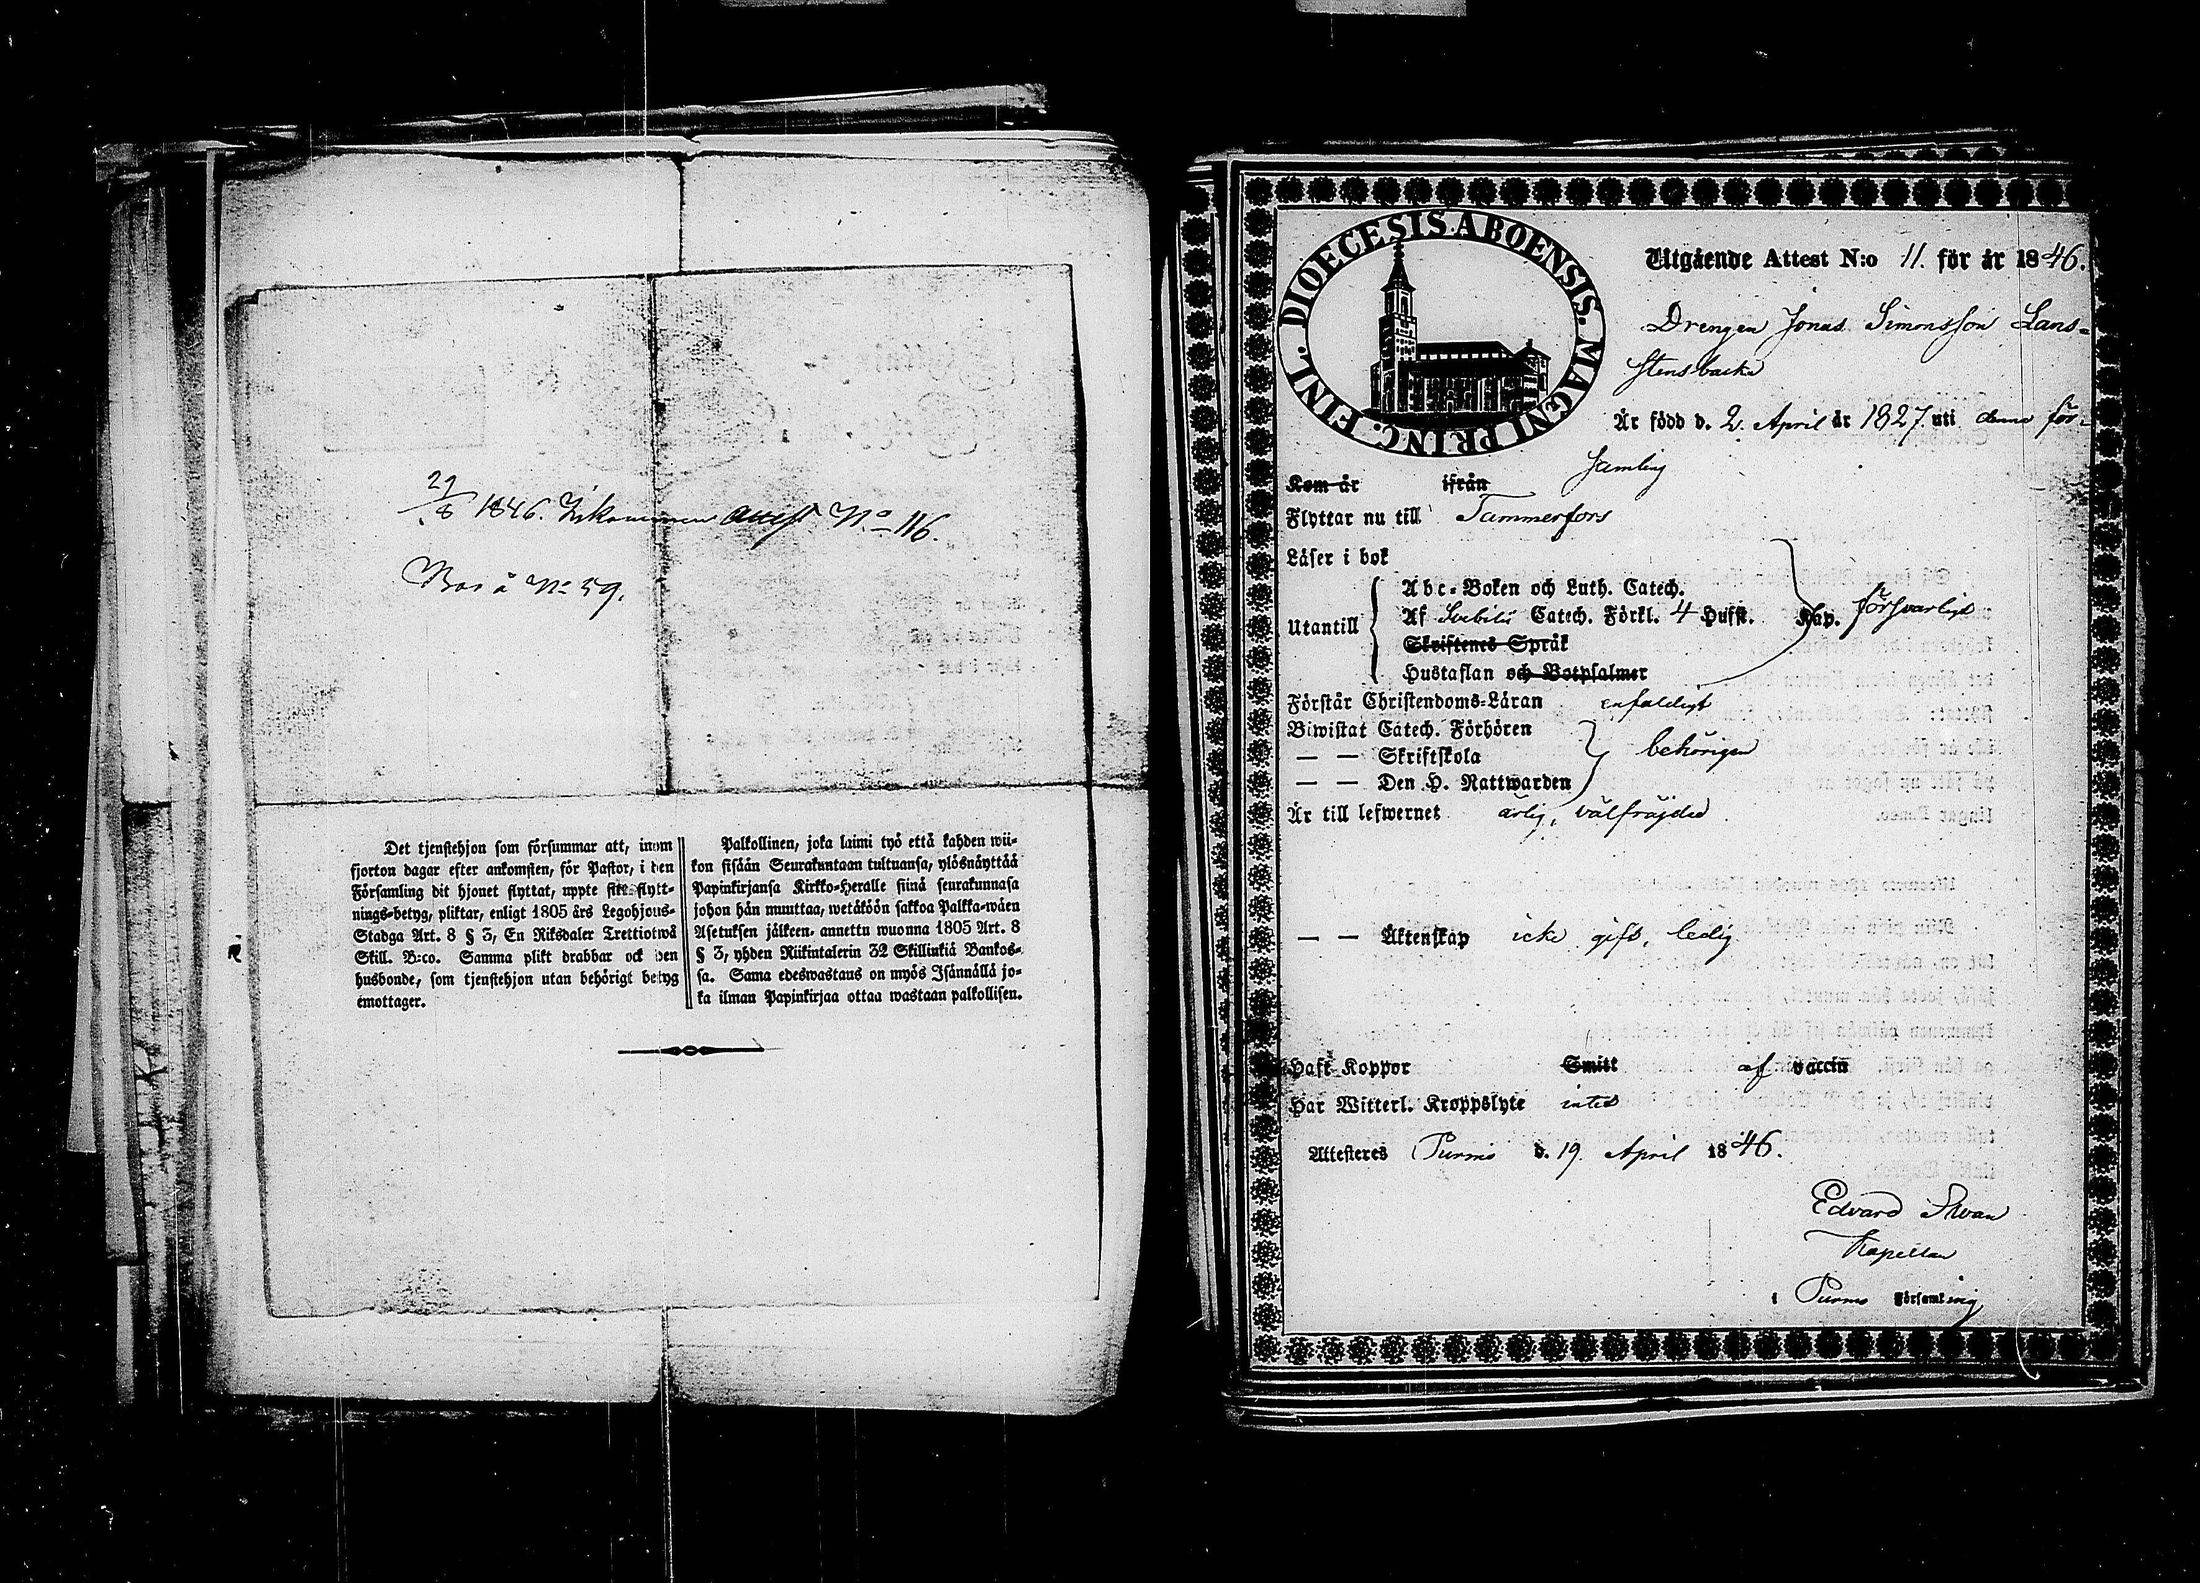 29/8 1846. Inkommen Attest N:o 116.
Bor å N:o 59.
Det tjenstehjon som försummar att, inom
fjorton dagar efter ankomsten, för Pastor, i den
Församling dit hjonet flyttat, uppte sitt flytt-
nings-betyg, pliktar, enligt 1805 års Legohjons-
Stadga Art. 8 § 3, En Riksdaler Trettiotwå
Skill. B:co. Samma plikt drabbar ock den
husbonde, som tjenstehjon utan behörigt betyg
emottager.
Palkollinen, joka laimi työ että kahden wii-
kon sisään Seurakuntaan tultuansa, ylösnäyttää
Papinkirjansa Kirkko-Heralle siinä seurakunnasa
johon hän muuttaa, wetäköön sakkoa Palkka-wäen
Asetuksen jälkeen, annettu wuonna 1805 Art. 8
§ 3, yhden Riikintalerin 32 Skillinkiä Bankos-
sa. Sama edeswastaus on myös Isännällä jo-
ka ilman Papinkirjaa ottaa wastaan palkollisen.
DIOECESIS ABOENSIS. MAGNI PRINC. FINL.
Utgående Attest N:o 11. för år 1846.
Drengen Jonas Simonsson Lans-
stensbacka
Är född d. 2. April år 1827. uti denna för-
samling
Kom år ifrån
Flyttar nu till Tammerfors
Läser i bok
Utantill
Abc-Boken och Luth. Catech.
Af Svebilii Catech. Förkl. 4 Hufst. Kap. försvarligt
Skriftenes Språk
Hustaflan och Botpsalmer
Förstår Christendoms-Läran enfaldigt
Biwistat Catech. Förhören
— — Skriftskola behörigen
— — Den H. Nattwarden
Är till lefwernet ärlig, välfräjdad
— — Äktenskap icke gift, ledig
Haft Koppor Smitt af vaccin
Har Witterl. Kroppslyte intet
Attesteres Purmo d. 19 April 1846.
Edvard Svan
Kapellan
i Purmo Församling